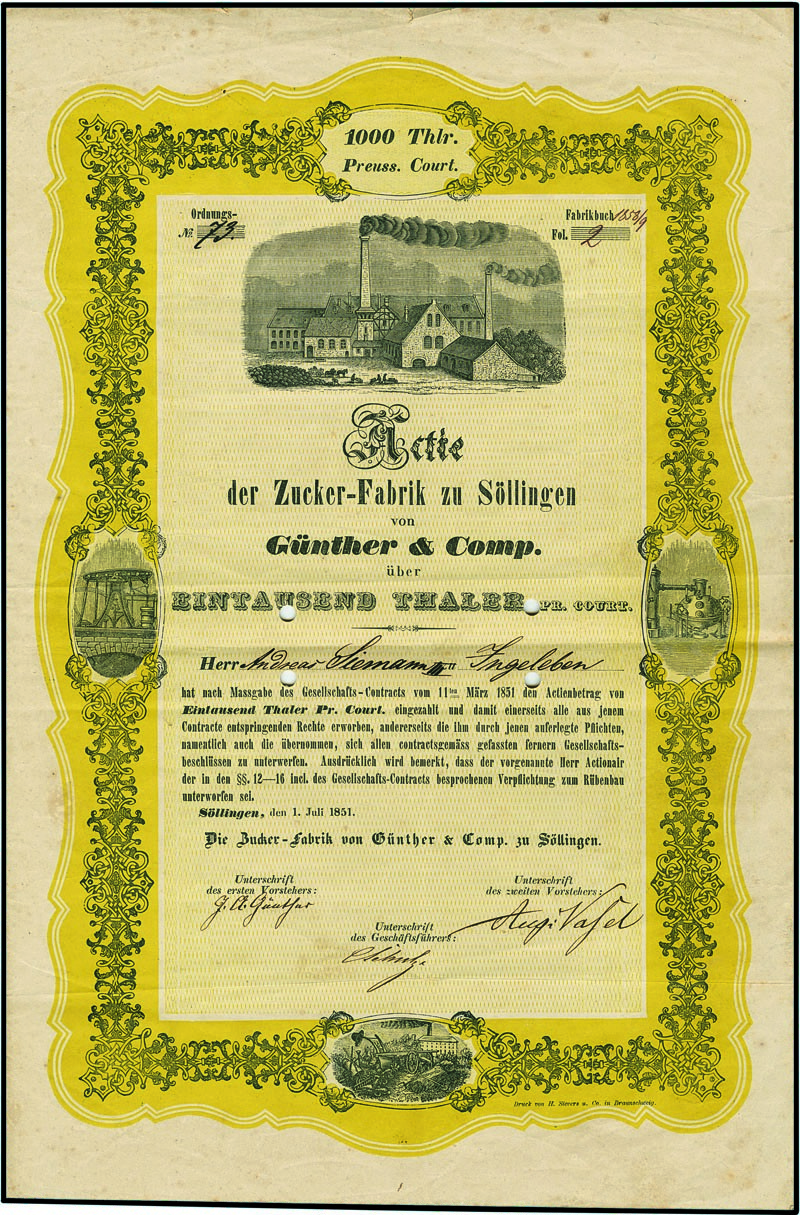 1000 Thlr.
Preuss. Court.
Ordnungs-
№ 73.
Fabrikbuch 1858/9
Fol. 2
Actie
der Zucker-Fabrik zu Söllingen
von
Günther & Comp.
über
EINTAUSEND THALER PR. COURT.
Herr Andreas Siemann in Ingeleben
hat nach Massgabe des Gesellschafts-Contracts vom 11ten März 1851 den Actienbetrag von
Eintausend Thaler Pr. Court. eingezahlt und damit einerseits alle aus jenem
Contracte entspringenden Rechte erworben, andererseits die ihm durch jenen auferlegte Pflichten,
namentlich auch die übernommen, sich allen contractsgemäss gefassten fernern Gesellschafts-
beschlüssen zu unterwerfen. Ausdrücklich wird bemerkt, dass der vorgenannte Herr Actionair
der in den §§. 12—16 incl. des Gesellschafts-Contracts besprochenen Verpflichtung zum Rübenbau
unterworfen sei.
Söllingen, den 1. Juli 1851.
Die Zucker-Fabrik von Günther & Comp. zu Söllingen.
Unterschrift
des ersten Vorstehers:
Günther
Unterschrift
des zweiten Vorstehers:
Aug: Vasel
Unterschrift
des Geschäftsführers:
Druck von H. Sievers u. Co. in Braunschweig.